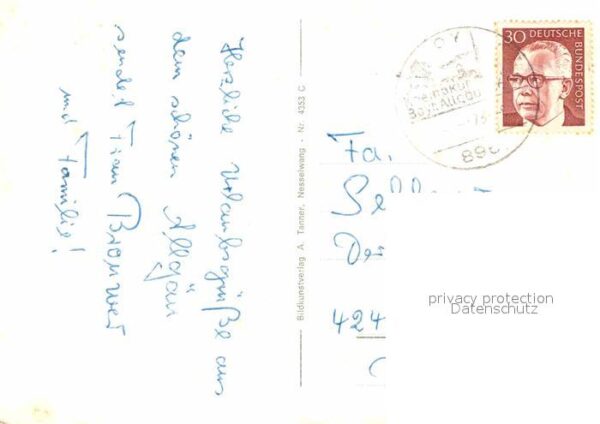 Herzliche Urlaubsgrüße aus
dem schönen Allgäu
sendet Fram
und Familie!
Bildkunstverlag A. Tanner, Nesselwang - Nr. 4353 C
30 DEUTSCHE
BUNDESPOST
OY
Bayr. Allgäu
896
Fa.
Se
De
424
privacy protection
Datenschutz